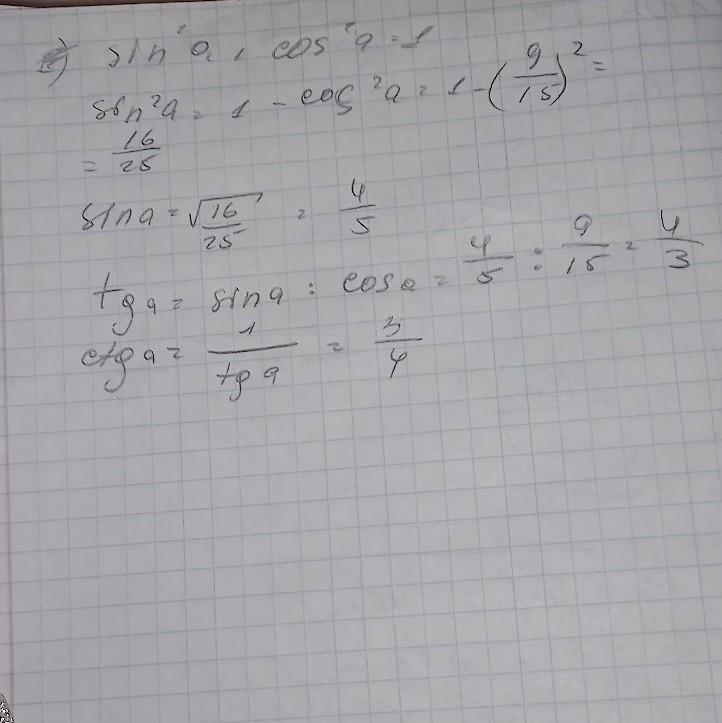 sin²a + cos²a = 1
sin²a = 1 - cos²a = 1 - (9/15)² =
= 16/25
sin a = √16/25 = 4/5
tg a = sin a : cos a = 4/5 : 9/15 = 4/3
ctg a = 1/tg a = 3/4